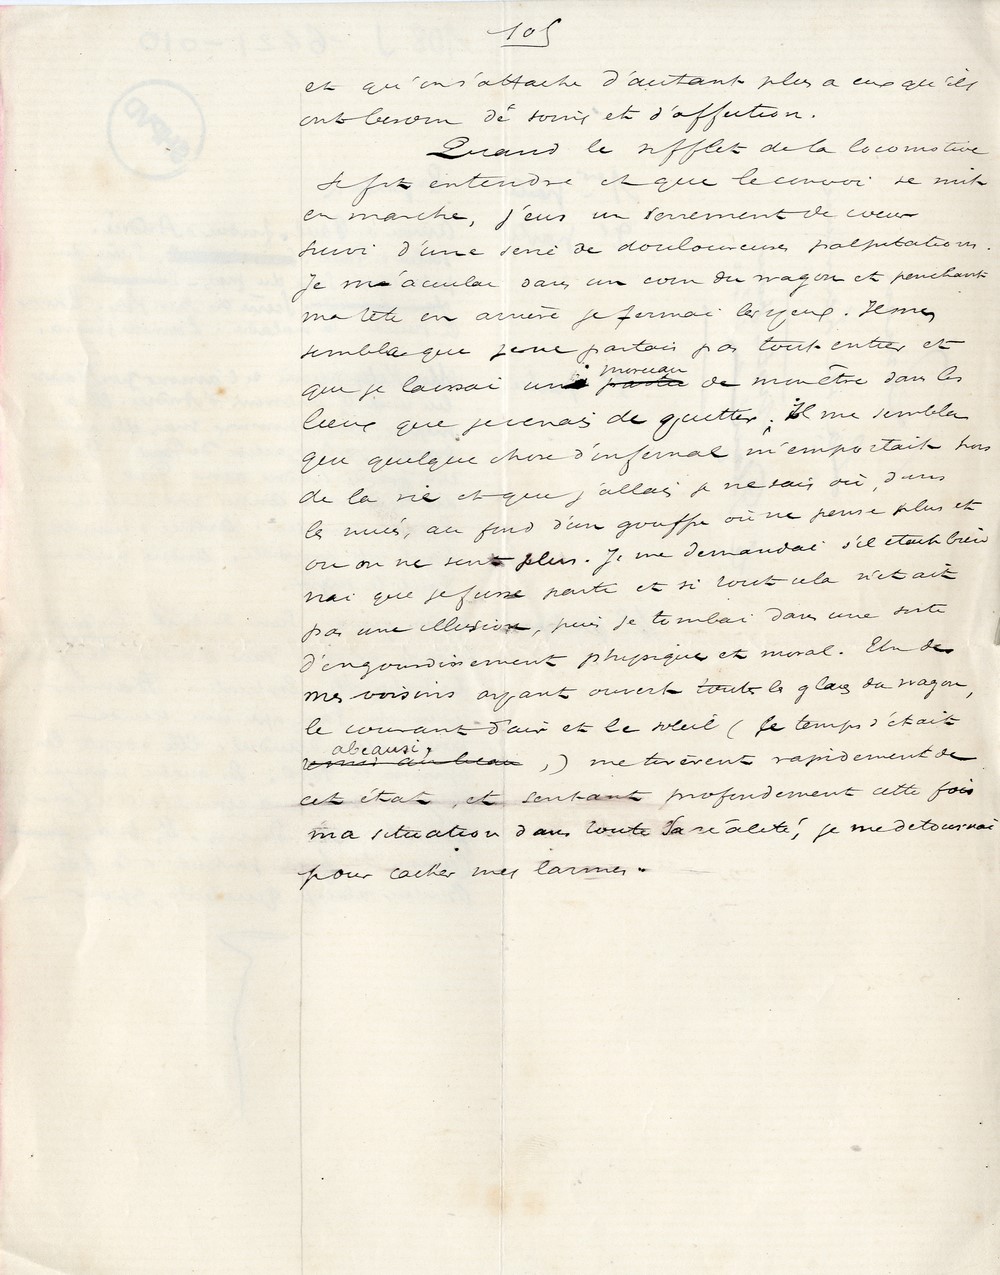 105
et qu'on s'attache d'autant plus a eux qu'ils
ont besoin de soins et d'affection.
Quand le sifflet de la locomotive
se fit entendre et que le convoi se mit
en marche, j'eus un serrement de coeur
suivi d'une serie de douloureuses palpitations.
Je m'acculai dans un coin du wagon et penchant
ma tête en arrière je fermai les yeux. Il me
sembla que je ne partais pas tout entier et
que je laissai un morceau partie de mon être dans les
lieux que je venais de quitter. Il me sembla
que quelque chose d'infernal m'emportait hors
de la vie et que j'allais je ne sais où, dans
les nués, au fond d'un gouffre où ne pense plus et
ou on ne sent plus. Je me demandai s'il était bien
vrai que je fusse partie et si tout cela n'etait
pas une illusion, puis je tombai dans une sorte
d'engourdissement physique et moral. Un de
mes voisins ayant ouvert toute la glace du wagon,
le courant d'air et le soleil (le temps s'était
abeausi,) me tirèrent rapidement de
cet état, et sentant profondement cette fois
ma situation dans toute sa réalité, je me detournai
pour cacher mes larmes.